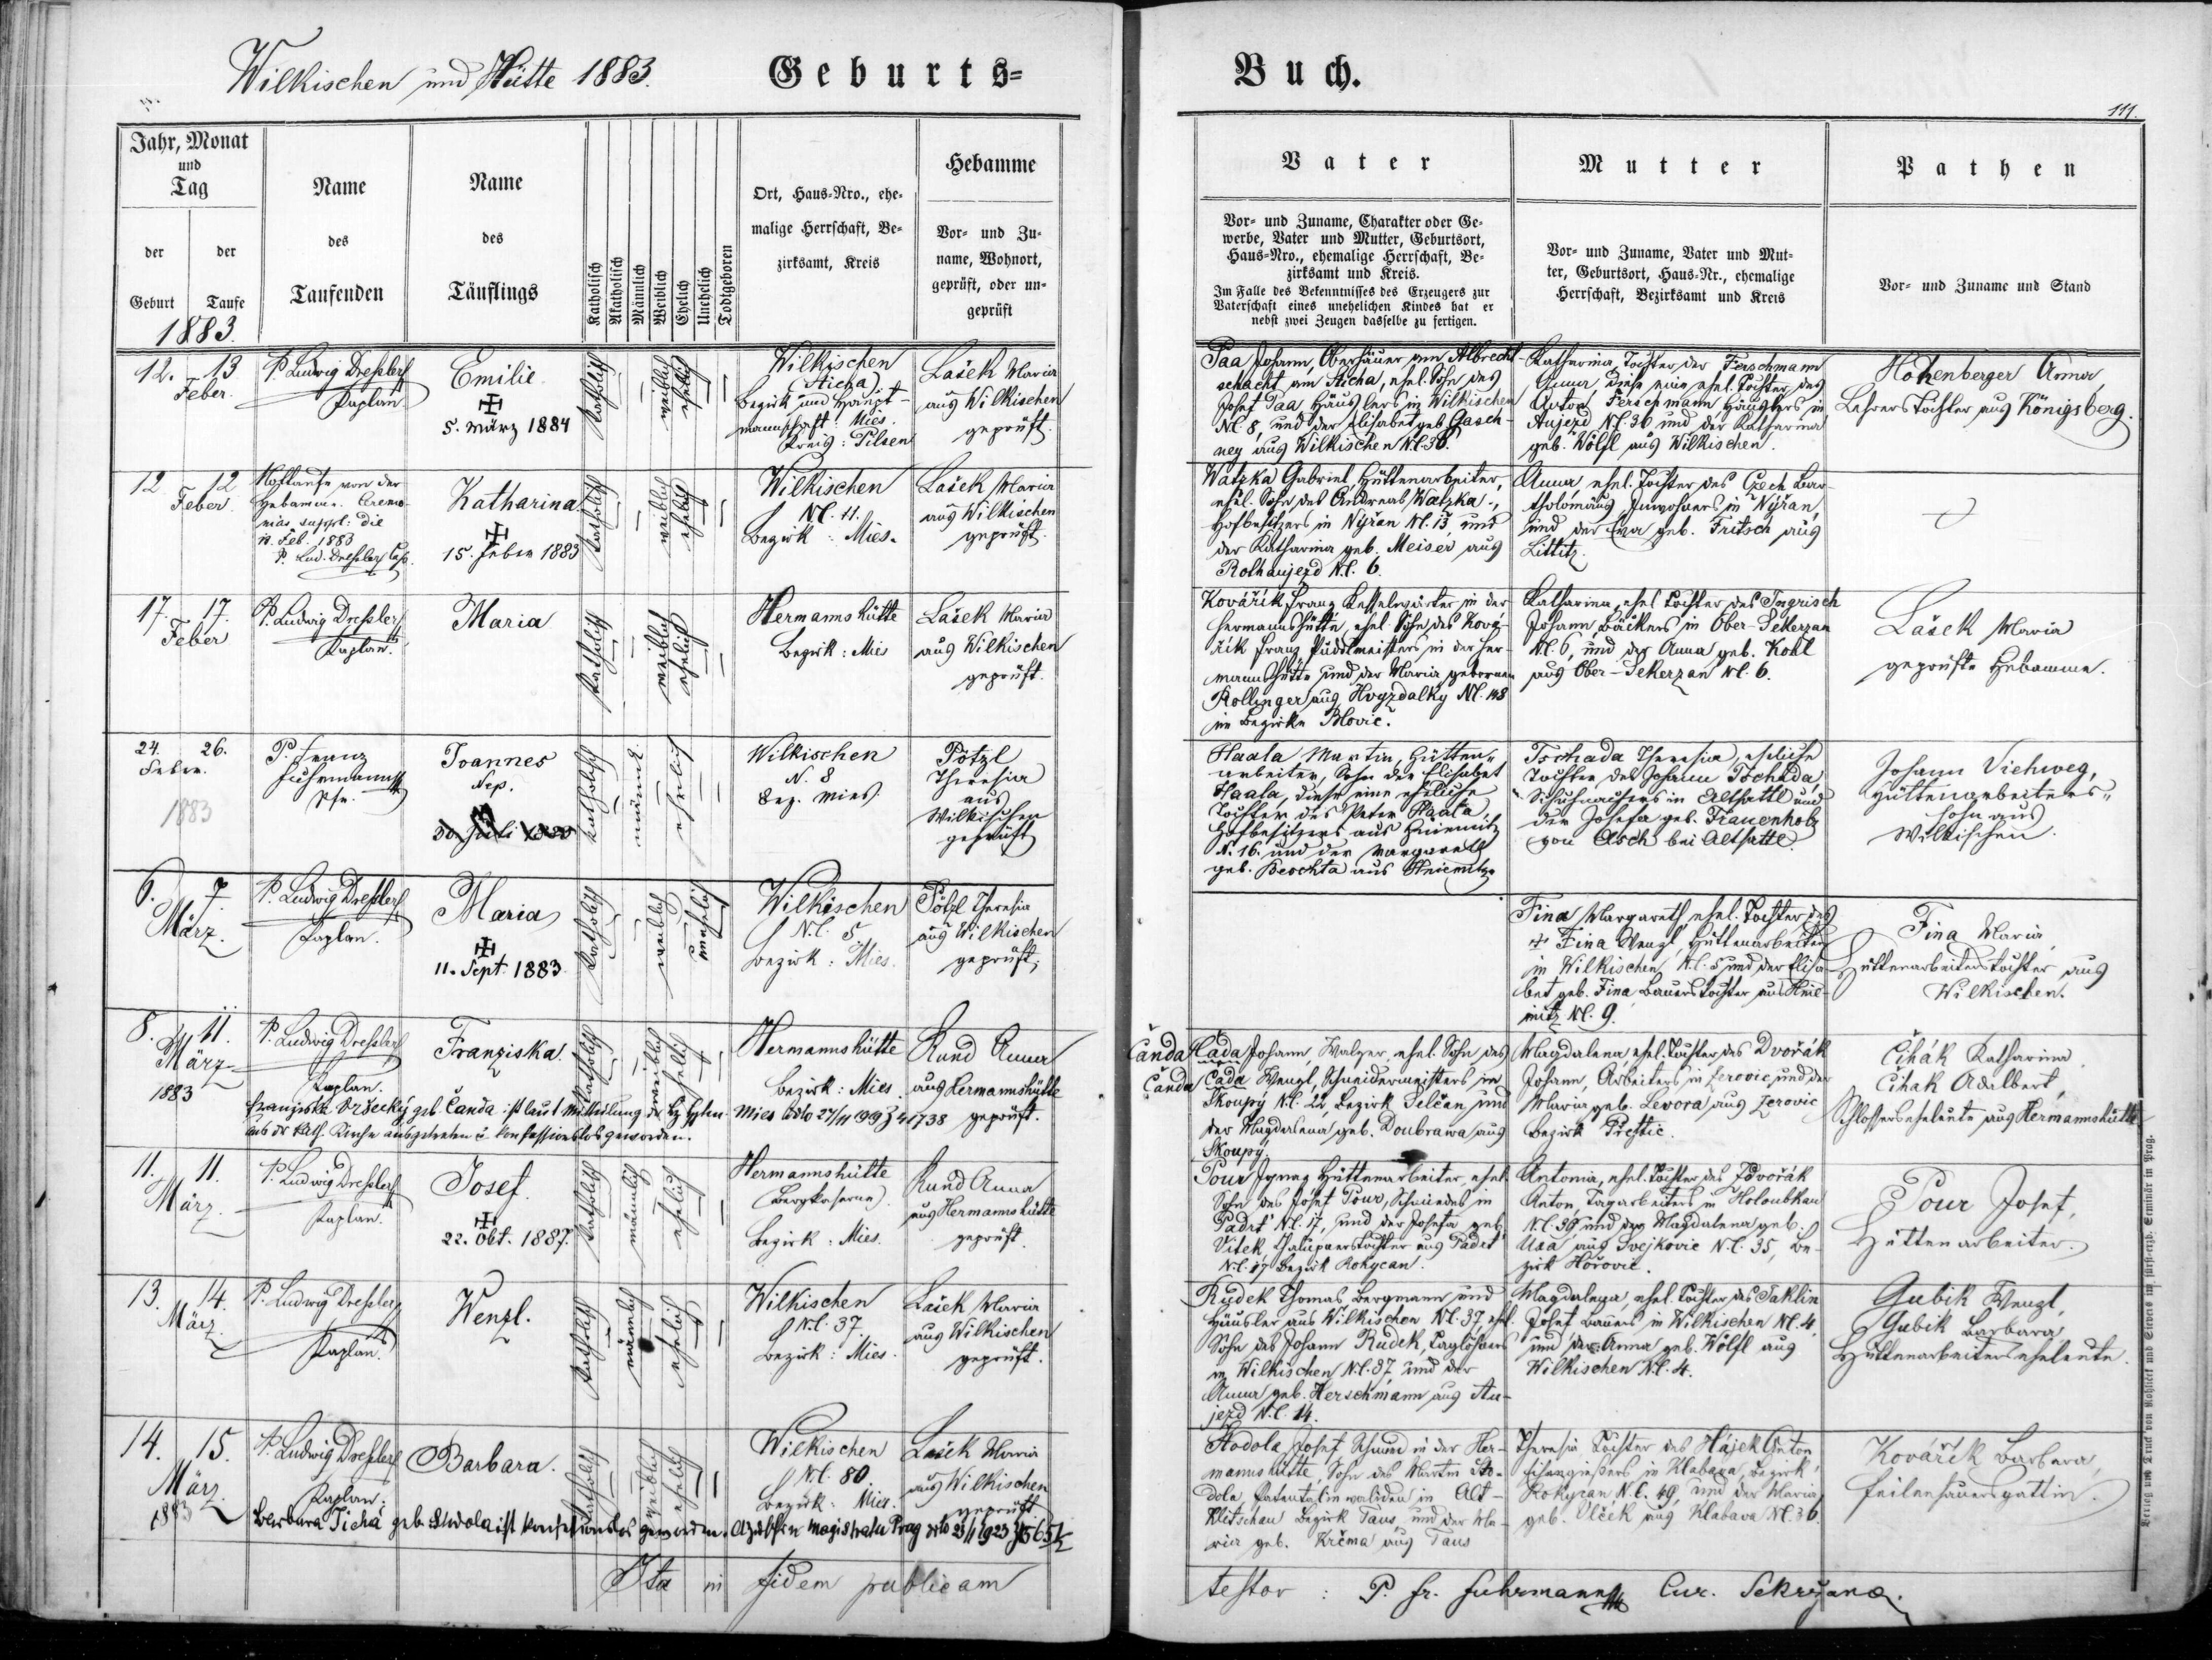 Wilkischen und Hütte 1883.
Geburts=
Buch.
111.
Jahr, Monat
und
Tag
der
Geburt
der
Taufe
1883.
Name
des
Taufenden
Name
des
Täuflings
Katholisch
Akatholisch
Männlich
Weiblich
Ehelich
Unehelich
Todtgeboren
Ort, Haus=Nro., ehe=
malige Herrschaft, Be=
zirksamt, Kreis
Hebamme
Vor= und Zu=
name, Wohnort,
geprüft, oder un=
geprüft
Vater
Vor= und Zuname, Charakter oder Ge=
werbe, Vater und Mutter, Geburtsort,
Haus=Nro., ehemalige Herrschaft, Be=
zirksamt und Kreis.
Im Falle des Bekenntnisses des Erzeugers zur
Vaterschaft eines unehelichen Kindes hat er
nebst zwei Zeugen dasselbe zu fertigen.
Mutter
Vor= und Zuname, Vater und Mut=
ter, Geburtsort, Haus=Nr., ehemalige
Herrschaft, Bezirksamt und Kreis
Pathen
Vor= und Zuname und Stand
12. 13
Feber.
P. Ludwig Dressler
Kaplan
Emilie
5. März 1884
katholisch
weiblich
ehelich
Wilkischen
(Sticha)
Bezirk und Haupt-
mannschaft: Mies.
Kreis: Pilsen
Lašek Maria
aus Wilkischen
geprüft.
Paa Johann, Oberhäuer am Albrecht-
schacht am Sticha, ehel. Sohn des
Josef Paa Häuslers in Wilkischen
Nč. 8, und der Elisabet geb. Gasch-
ney aus Wilkischen Nč. 38.
Katharina, Tochter der Ferschmann
Anna, diese eine ehel. Tochter des
Anton Ferschmann, Häuslers in
Aujezd Nč. 36 und der Katharina
geb. Wölfl aus Wilkischen.
Hohenberger Anna,
Lehrers Tochter aus Königsberg.
12 12
Feber
Nottaufe von der
Hebamme. Ceremo-
nias suppl: die
Feb. 1883
P. Lud. Dressler Cap.
Katharina
15. Feber 1883
katholisch
weiblich
ehelich
Wilkischen
Nč. 11.
Bezirk: Mies.
Lašek Maria
aus Wilkischen
geprüft.
Watzka Gabriel Hüttenarbeiter,
ehel. Sohn des Andreas Watzka,
Hofbesitzers in Nyřan Nč. 13, und
der Katharina geb. Meiser aus
Rothaujezd Nč. 6.
Anna, ehel. Tochter des Czech Bar-
tholomäus, Inwohners in Nyřan,
und der Eva geb. Fritsch aus
Littitz.
17. 17.
Feber
P. Ludwig Dressler
Kaplan.
Maria
katholisch
weiblich
ehelich
Hermannshütte
Bezirk: Mies
Lašek Maria
aus Wilkischen
geprüft.
Kovářík Franz Kesselwärter in der
Hermannshütte, ehel. Sohn desKová-
řík Franz Puddlmeisters in der Her-
mannshütte und der Maria gebornen
Rollinger aus Nč. 148
im Bezirke Blovic.
Katharina, ehel. Tochter des Ingrisch
Johann, Bäckers in Ober-Sekerzan
Nč. 6, und der Anna geb. Kohl
aus Ober-Sekerzan Nč. 6.
Lašek Maria
geprüfte Hebamme.
24. 26.
Feber.
1883
P. Franz
Fuhrmann
Pfr.
Joannes
Nep.
30. Juli
katholisch
männl.
ehelich
Wilkischen
N. 8
Bez. Mies.
Pötzl
Theresia
aus
Wilkischen
geprüft
Haala Martin, Hütten-
arbeiter, Sohn der Elisabet
Haala, diese eine eheliche
Tochter des Peter Haala,
Hofbesitzers aus Hniemitz
N. 16. und der Margareth
geb. Beschta aus Hniemitz.
Tschada Theresia, eheliche
Tochter des Johann Tschada,
Schuhmachers in Altsattl und
der Josefa geb. Frauenholz
von Asch bei Altsattl.
Johann Viehweg,
Hüttenarbeiters-
sohn aus
Wilkischen.
6. 7.
März.
P. Ludwig Dressler
Kaplan.
Maria
11. Sept. 1883.
katholisch
weiblich
unehelich
Wilkischen
Nč. 5
Bezirk: Mies.
Pötzl Theresia
aus Wilkischen
geprüft.
Fina Margareth, ehel. Tochter des
Fina Wenzl, Hüttenarbeiters
in Wilkischen, Nč. 5 und der Elisa-
bet geb. Fina Bauers Tochter aus Hnie-
mitz Nč. 9.
Fina Maria,
Hüttenarbeiters Tochter aus
Wilkischen.
8. 11.
März
1883
P. Ludwig Dressler
Kaplan.
Franziska
katholisch
weiblich
ehelich
Hermannshütte
Bezirk: Mies
Rund Anna
aus Hermannshütte
geprüft.
Franziska Vršecký geb. Čanda ist laut Mitteilung der Bz. Hptm. Mies ddto 27/11 1919 Z 41738
aus der kath. Kirche ausgetreten u. konfessionslos geworden.
Čanda
Čanda
Čada Johann, Walzer, ehel. Sohn des
Čada Wenzl, Schneidermeisters in
Skoupý Nč. 22 Bezirk Selčan, und
der Magdalena geb. Doubrawa aus
Skoupý.
Magdalena ehel. Tochter des Dvořák
Johann, Arbeiters in Žerovic, und der
Maria geb. Levora aus Žerovic
Bezirk Přestic.
Čihák Katharina,
Čihak Adalbert,
Schlossers eheleute aus Hermannshütte
11. 11.
März
P. Ludwig Dressler
Kaplan.
Josef.
22. Okt. 1887.
katholisch
männlich
ehelich
Hermannshütte
(Bergkaserne)
Bezirk: Mies.
Rund Anna
aus Hermannshütte
geprüft
Pour Ignaz Hüttenarbeiter, ehel.
Sohn des Josef Pour, Schmiedes in
Padrt Nč. 17, und der Josefa geb.
Vitek, Chalupners Tochter aus Padrt
Nč. 17 Bezirk Rokycan.
Antonia, ehel. Tochter des Dvořák
Anton, Tagarbeiters in Holoubkau
Nč. 39 und der Magdalena geb.
aus Svejkovic Nč. 35, Be-
zirk Hořovic.
Pour Josef,
Hüttenarbeiter.
13. 14.
März
P. Ludwig Dressler
Kaplan.
Wenzl.
katholisch
männlich
ehelich
Wilkischen
Nč. 37.
Bezirk: Mies.
Lašek Maria
aus Wilkischen
geprüft.
Rudek Thomas Bergmann und
Häusler aus Wilkischen Nč. 37, ehel.
Sohn des Johann Rudek, Taglöhners
in Wilkischen Nč. 37, und der
Anna geb. Herschmann aus Au-
jezd Nč. 14.
Magdalena, ehel. Tochter des Taklin
Josef Bauers in Wilkischen Nč. 4,
und der Anna geb. Wölfl aus
Wilkischen Nč. 4.
Gubik Wenzl,
Gubik Barbara
Hüttenarbeiterseheleute.
14. 15.
März
1883
P. Ludwig Dressler
Kaplan.
Barbara.
katholisch
weiblich
ehelich
Wilkischen
Nč. 80.
Bezirk: Mies.
Lašek Maria
aus Wilkischen
geprüft.
Barbara Tichá geb. Stodola ist konfessionslos geworden. Magistrate Prag ddto
Stodola Josef Schmied in der Her-
mannshütte, Sohn des Martin Sto-
dola, Patentalinvaliden in Alt-
Klitschau Bezirk Taus, und der Ma-
ria geb. Krčma aus Taus
Theresia Tochter des Hájek Anton
Eisengießers in Klabava, Bezirk
Rokycan Nč. 49, und der Maria
geb. Vlček aus Klabava Nč. 36.
Kovářík Barbara,
Feilenhauersgattin.
Ita in fidem publicam
testor: P. Fr. Fuhrmann Cur. Sekržanæ.
Verlag und Druck von Rohliček und Sievers im fürst=erzb. Seminär in Prag.